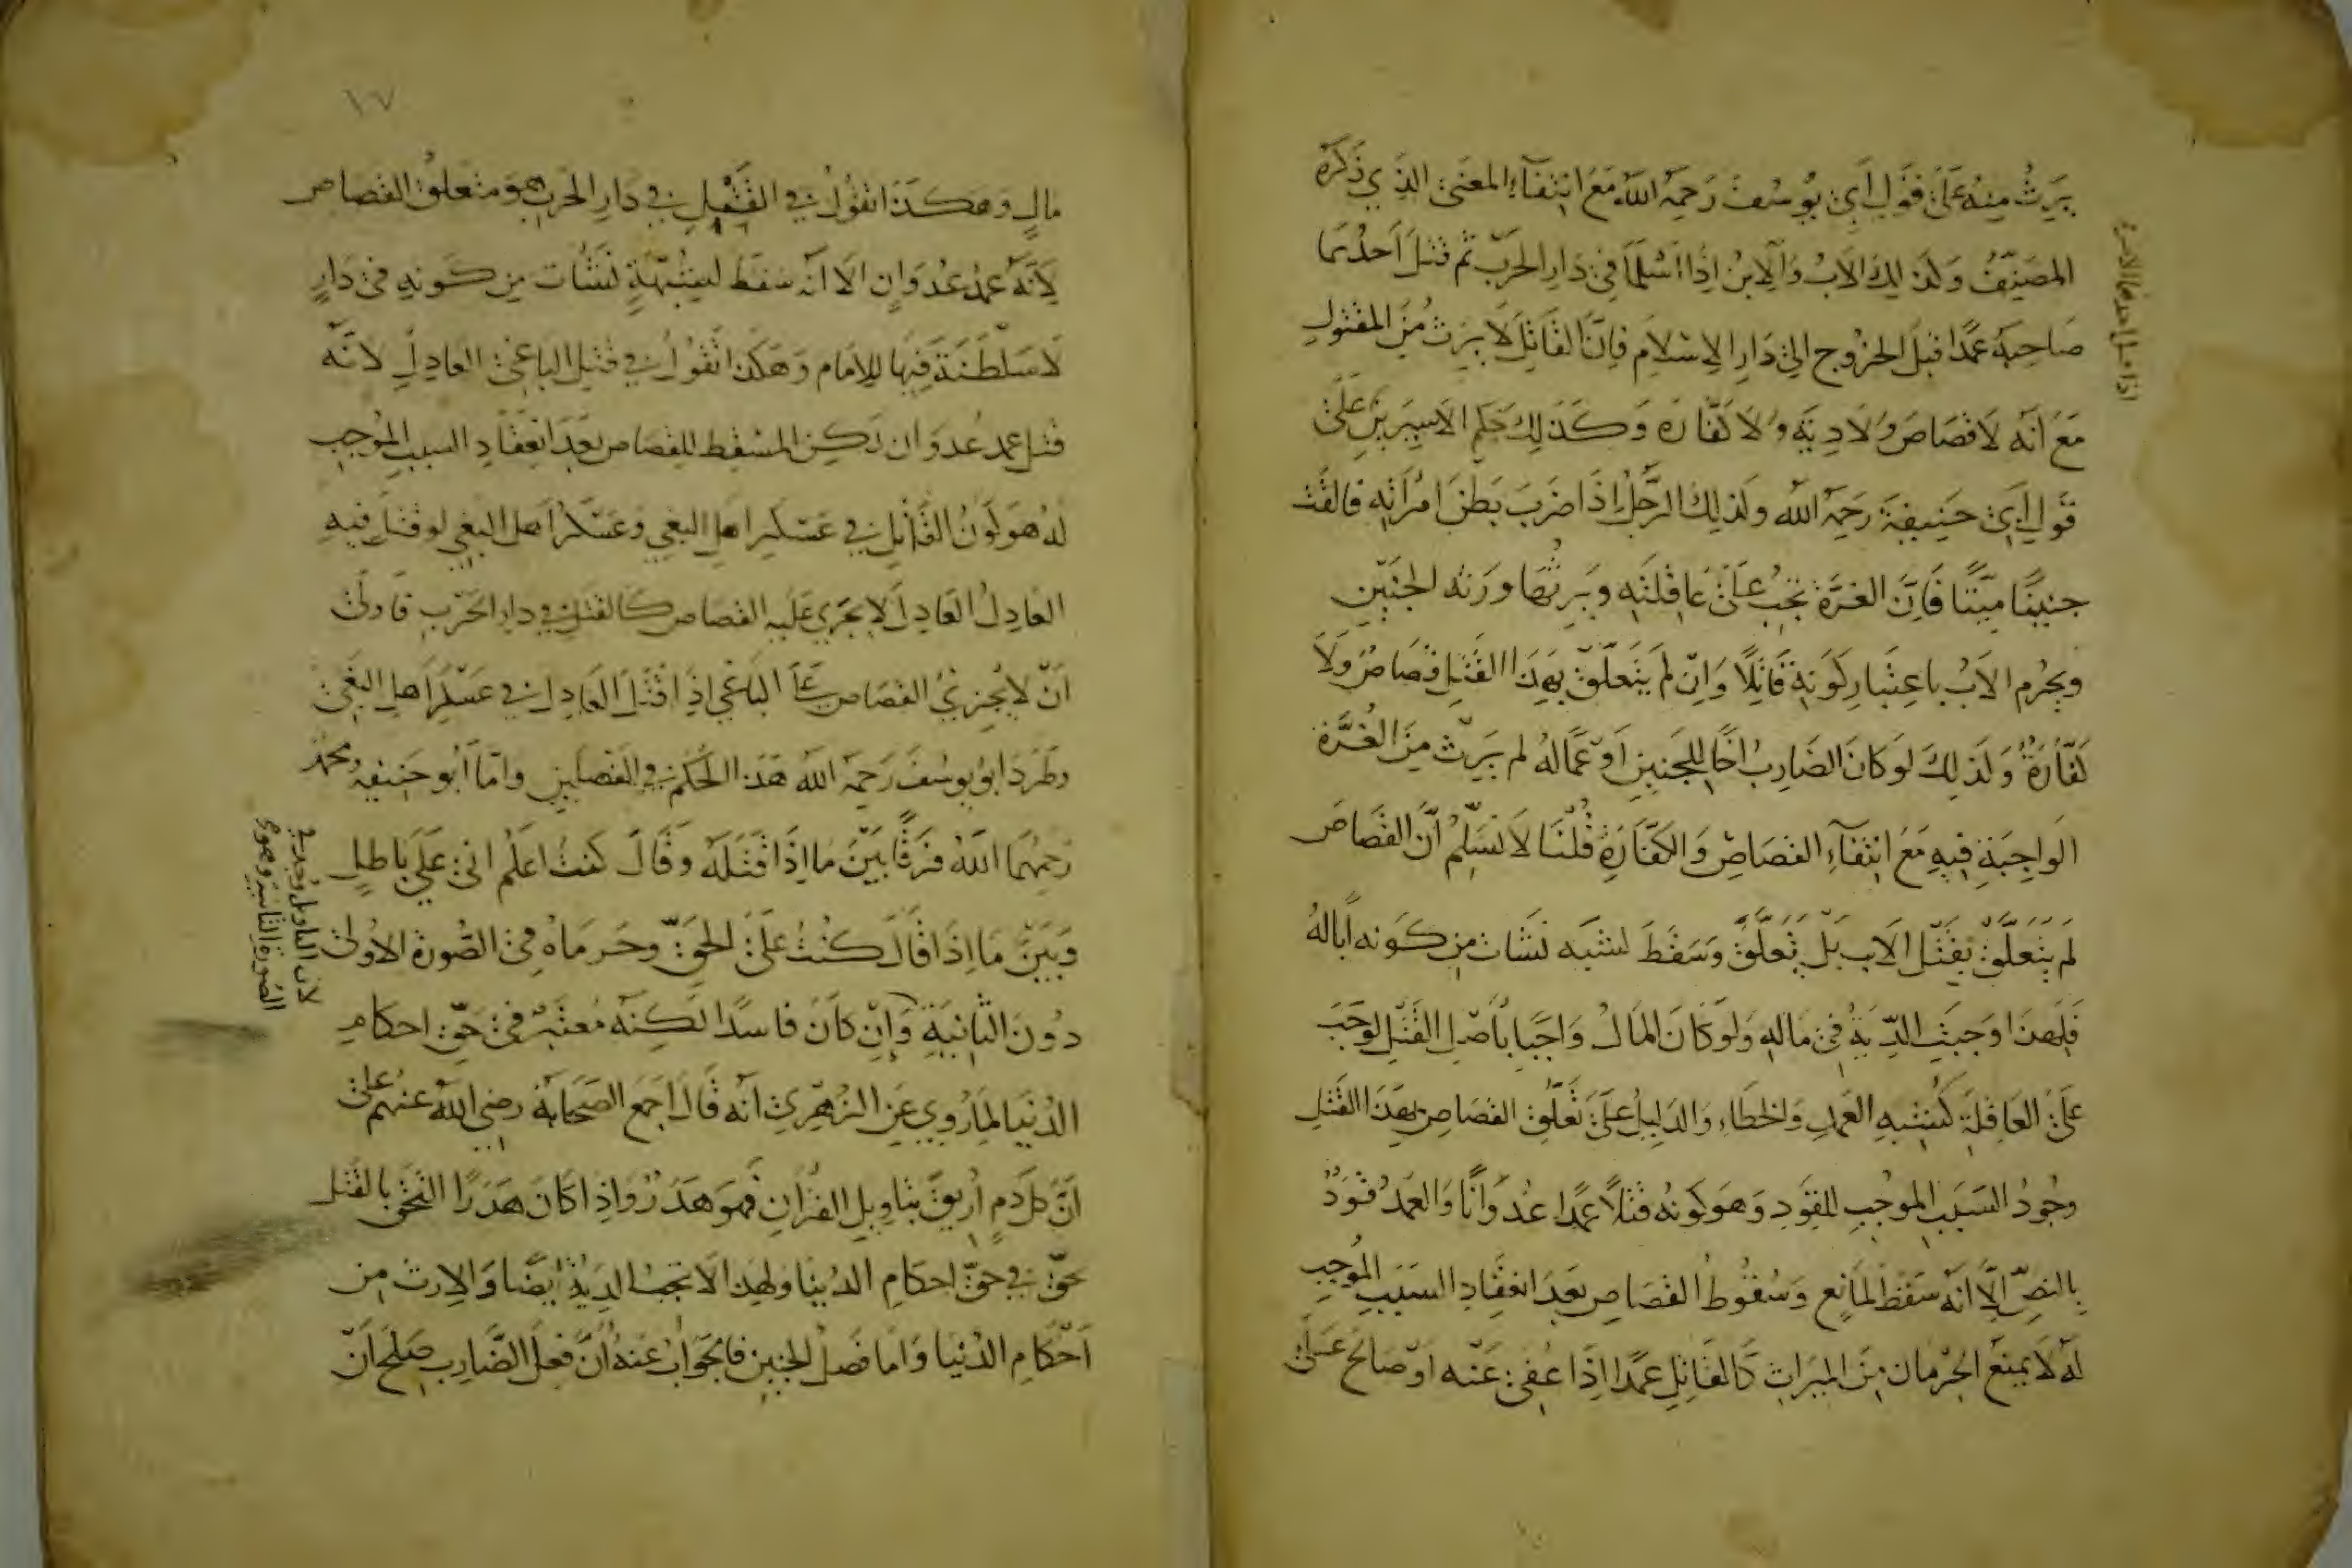 يَرِثُ مِنهُ عَلَى قَولِ أَبِي يُوسُفَ رَحِمَهُ اللَّهُ مَعَ انتِفَاءِ المَعنَى الذِي ذَكَرَهُ
المصَنِّفُ وَلذلِكَ الاَبُ وَالاِبنُ اِذَا اَسْلَمَا فِي دَارِ الحَرْبِ ثم قتلَ اَحَدُهُمَا
صَاحِبَهُ عَمدًا قبلَ الخرُوج الي دَارِ الاِسْلاَمِ فَاِنَّ القَاتِلَ لاَ يَرِثُ مِنَ المقتولِ
مَعَ اَنَّه لاَ قصَاصَ وَلاَ دِيَّةَ وَلاَ كفَّارَةَ وَكَذلِكَ حكم الاَسِيرَينِ عَلَى
قَولِ اَبِي حَنِيفَةَ رَحِمَهُ الله وَلذلِكَ الرَّجُلُ اِذَا ضَرَبَ بَطنَ امرَاَتِهِ فالقَت
جنينًا ميِّتًا فَاِنَّ الغرَّةَ تجبُ عَلَى عَاقِلَتِهِ وَيَرِثُهَا وَرَثة الجنِينِ
وَيحرُم الاَبُ باعِتبارِ كَونِهِ قَاتِلاً وَاِنْ لَم يَتَعَلَّقْ بِهَذَا القَتلِ قصَاصٌ وَلاَ
كفَّارَةٌ وَلَذلِكَ لَو كَانَ الضَارِبُ اخًا للجَنِينِ اَوْ عَمًّا لهُ لم يَرِثْ مِنَ الغُرَّةِ
الوَاجِبَةِ فِيهِ مَعَ انتِفَآءِ القصَاصِ وَالكَفَّارَةِ قُلْنَا لاَ نُسَلِّمُ اَنَّ القصَاصَ
لَم يَتَعَلَّقْ بِقَتْلِ الاَبِ بَلْ تَعَلَّقَ وَسَقَطَ لشبهَه نشَأت مِن كَونه اَبًا لهُ
فَلِهذَا وَجبَتِ الدِّيَةُ فِي مَالِهِ وَلَو كَانَ المَالُ وَاجِبًا بِأصْلِ القَتْلِ لوَجَبَ
عَلَى العَاقِلَةِ كَشبهِ العَمدِ وَالخطاءِ وَالدَلِيلُ عَلَى تَعَلُّقِ القصَاصِ بِهذَا القَتلِ
وجُودُ السَبَبِ الموُجبِ للقَوَدِ وَهوَ كونُه قتلاً عَمدًا عُدوَانًا وَالعَمدُ قَوَدٌ
بِالنصِّ اِلاَّ اَنَّهُ سَقَطَ لمَانِع وَسُقُوطُ القصَاصِ بعَدَ انعِقَادِ السَبَبِ الموُجبِ
لَه لاَ يمنَع الحرْمَان مِنَ المِيرَاثِ كَالقَاتِلِ عمدًا اِذَا عُفي عَنْه اَوْ صَالحَ عَلَى
اَحَدهما الاخر
١٧
مالٍ وَهكَذَا نقُولُ فِي القَتْلِ فِي دَارِ الحَربِ هوَ متعلق القصَاص
لاَنَّهُ عمدُ عُدْوَانٍ الاَ انَّهُ سَقَطَ لِشبهَةٍ نَشَأت مِن كَونِهِ فِي دَارٍ
لاَ سَلطَنَةَ فِيهَا لِلامَامِ وَهَكذَا نَقُولُ في قتلِ البَاغي العَادِلَ لاَنَّه
قتل عمد عُدوَان لكِن المسْقِط للقِصَاصِ بعَدَ انعِقَادِ السببِ الموُجبِ
لهُ هوَ كَوَنُ القَاتِلِ في عَسْكَرِ اهلِ البغي وَعَسْكَرُ اَهلِ البَغي لو قتلَ فِيهِ
العَادِلُ العَادِلَ لاَ يجَرِي عَليه القصَاص كَالقتلِ في دارِ الحَرْبِ فَاَولى
اَنْ لاَ يُجزيَ القصَاص عَلَى البَاغي اِذَا قَتَلَ العَادِل في عَسْكَرِ اَهلِ البَغي
وَطَرَدَ ابوُ يوسُفَ رَحِمَهُ اللَّه هَذَا الحُكمَ في الفَصلَينِ وَاَمَّا اَبُو حَنِيفَة وَمحمّد
رَحِمَهُمَا اللَّهُ فرَّقَا بَيْنَ مَا اِذَا قَتَلَهُ وَقَالَ كنتُ اَعلَم اني عَلَى بَاطِلٍ
وَبَيْنَ مَا اِذَا قَالَ كنتُ عَلَى الحَقِّ وَحَرمَاهُ في الصُّورَةِ الاُولى
دوُنَ الثَانِيَةِ وَاِنْ كَانَ فاسدًا لكِنَّهُ مُعتَبَرٌ في حَقِّ احكامِ
الدُنيَا لِمَا رُوِي عَنِ الزُهرِيِّ اَنَّهُ قَالَ اجمَعَ الصَحَابَة رضي الله عَنهُم عَلَى
اَنَّ كلّ دَمٍ اُرِيقَ بتَاوِيلِ القُرْانِ فهوَ هَدَرٌ وَاذِا كَانَ هَدَرًا التحَق بِالقَتلِ
بحَقٍّ في حَقِّ احكَامِ الدُنيَا وَلهذا لاَ تجبُ الدِيَةُ اَيضًا وَالاِرث مِن
اَحْكَامِ الدُنيَا وَاَمَّا فَصلُ الجنِينِ فالجَوَابُ عَنهُ اَنَّ فِعلَ الضَّارِبِ صَلحَ اَنْ
لان التاويل وُجد في
الصُورَة الثانية وَهوَ